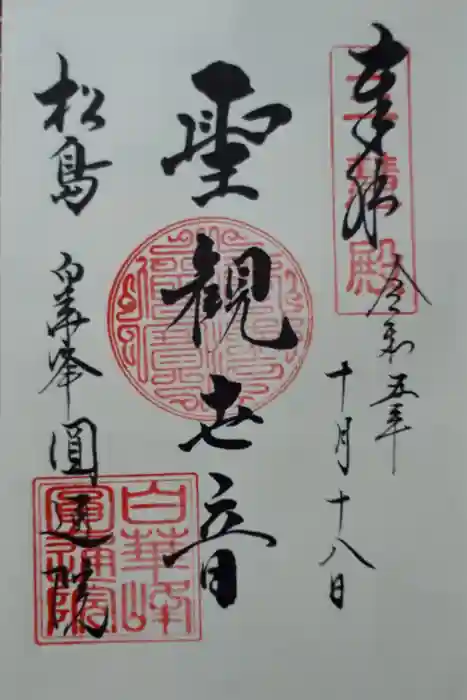 奉拝
令和五年
十月十八日
聖観世音
松島
白華峰
圓通院
三慧殿
白華峰
圓通院